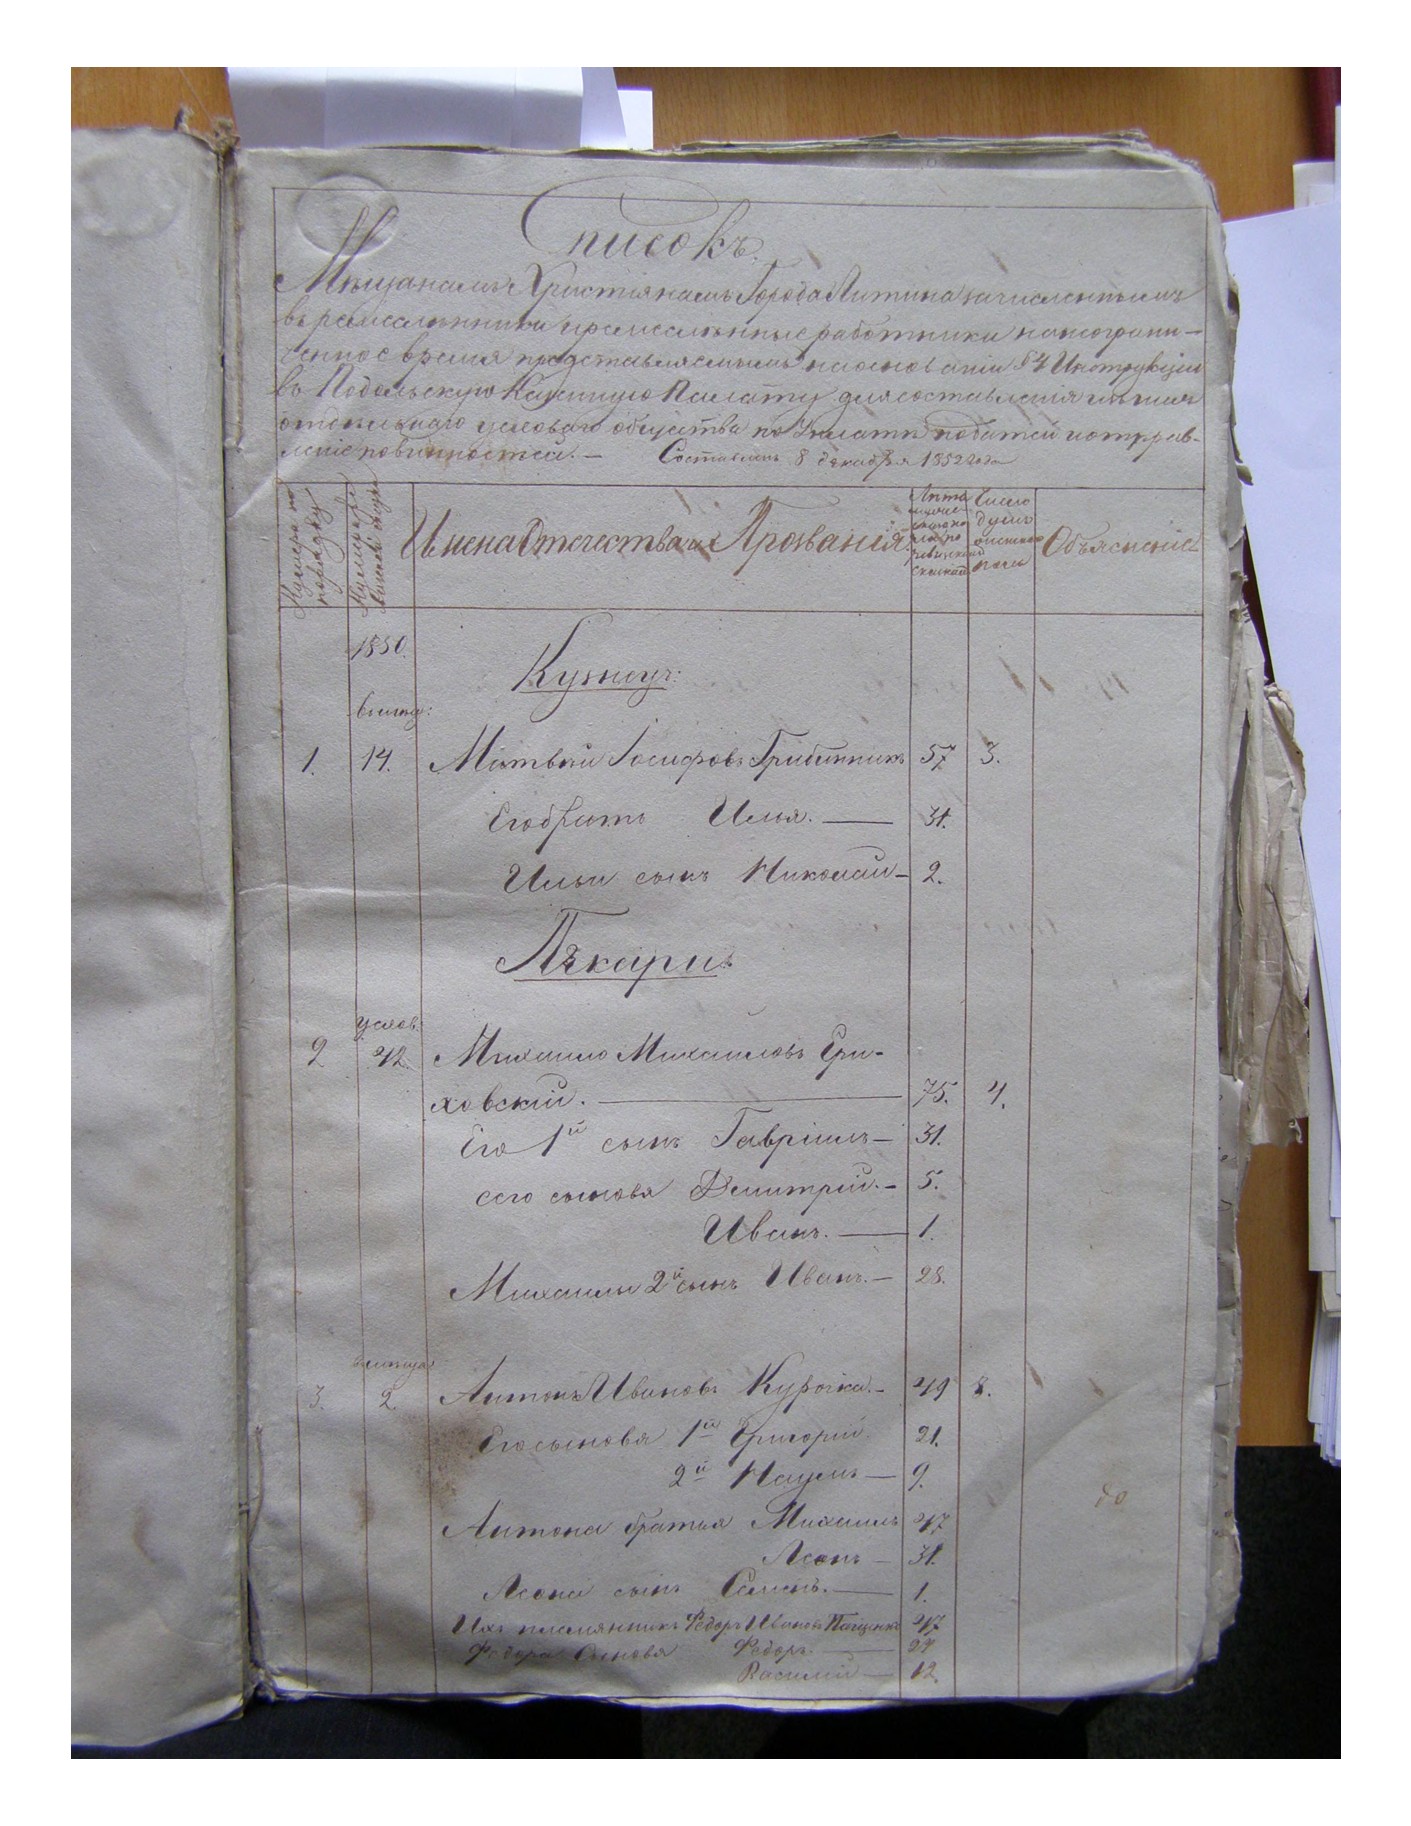 Списокъ.
Мѣщанамъ Христіянамъ Города Литина зачисленнымъ
въ ремесленники и ремесленные работники на неограни-
ченное время представляемымъ на основаніи § 4 Инструкціи
въ Подольскую Казенную Палату для составленія изъ нихъ
отдельнаго цеховаго общества по уплатѣ податей и отправ-
леніе повинностей. — Составленъ 8 декабря 1852 года
Нумера по порядку
Нумера
Имена Отечества и Прозванія.
Лѣта
Число душъ мужеска пола
Объясненіе
1850.
Кузнецъ:
1. 14. Матвѣй Іосифовъ Грибинникъ 57 3.
Его братъ Илья. — 31.
Ильи сынъ Николай — 2.
Пѣкари.
2 42. Михайло Михайловъ Гри-
ховскій. — 75. 4.
Его 1й сынъ Гавріилъ — 31.
сего сыновя Дмитрій. — 5.
Иванъ. — 1.
Михайлы 2й сынъ Иванъ. — 28.
3. 2. Антонъ Ивановъ Курочка. — 49 8.
Его сыновя 1й Григорій 21.
2й Наумъ — 9.
Антона братья Михаилъ 47
Ясонъ — 31.
Ясона сынъ Семенъ. — 1.
Ихъ племянникъ Федоръ Ивановъ Пащенко 47
Федора Сыновя Федоръ. — 24
Василій — 12.